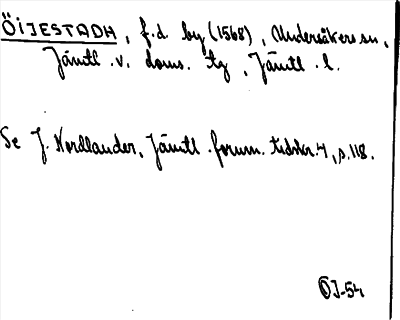 ÖIJESTADH, f.d by (1568), Undersåkers sn,
Jämtl. v. doms. tg, Jämtl. l.
Se J. Nordlander, Jämtl. fornm. tidskr. 4, s. 118.
ÖJ-54